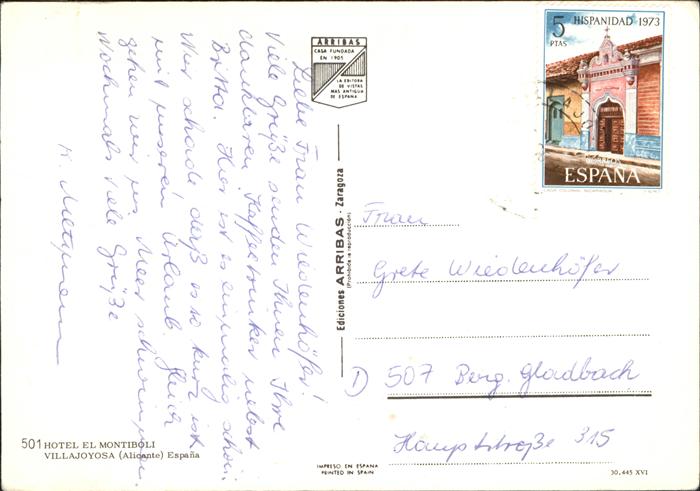 Liebe Frau Wiedenhöfer!
Viele Grüße senden Ihnen Ihre
dankbaren Kaffeetrinker nebst
Britta. Hier ist es einmalig schön.
Nur schade daß es so kurz ist
mit unserem Urlaub. Gleich
gehen wir ins Meer schwimmen.
Nochmals viele Grüße
K.
ARRIBAS
CASA FUNDADA
EN 1905
LA EDITORA
DE VISTAS
MAS ANTIGUA
DE ESPAÑA
Ediciones ARRIBAS - Zaragoza
(Prohibida la reproducción)
HISPANIDAD 1973
5
PTAS
CORREOS
ESPAÑA
Frau
Grete Wiedenhöfer
D 507 Berg. Gladbach
Hauptstraße 315
501 HOTEL EL MONTIBOLI
VILLAJOYOSA (Alicante) España
IMPRESO EN ESPAÑA
PRINTED IN SPAIN
30.445 XVI